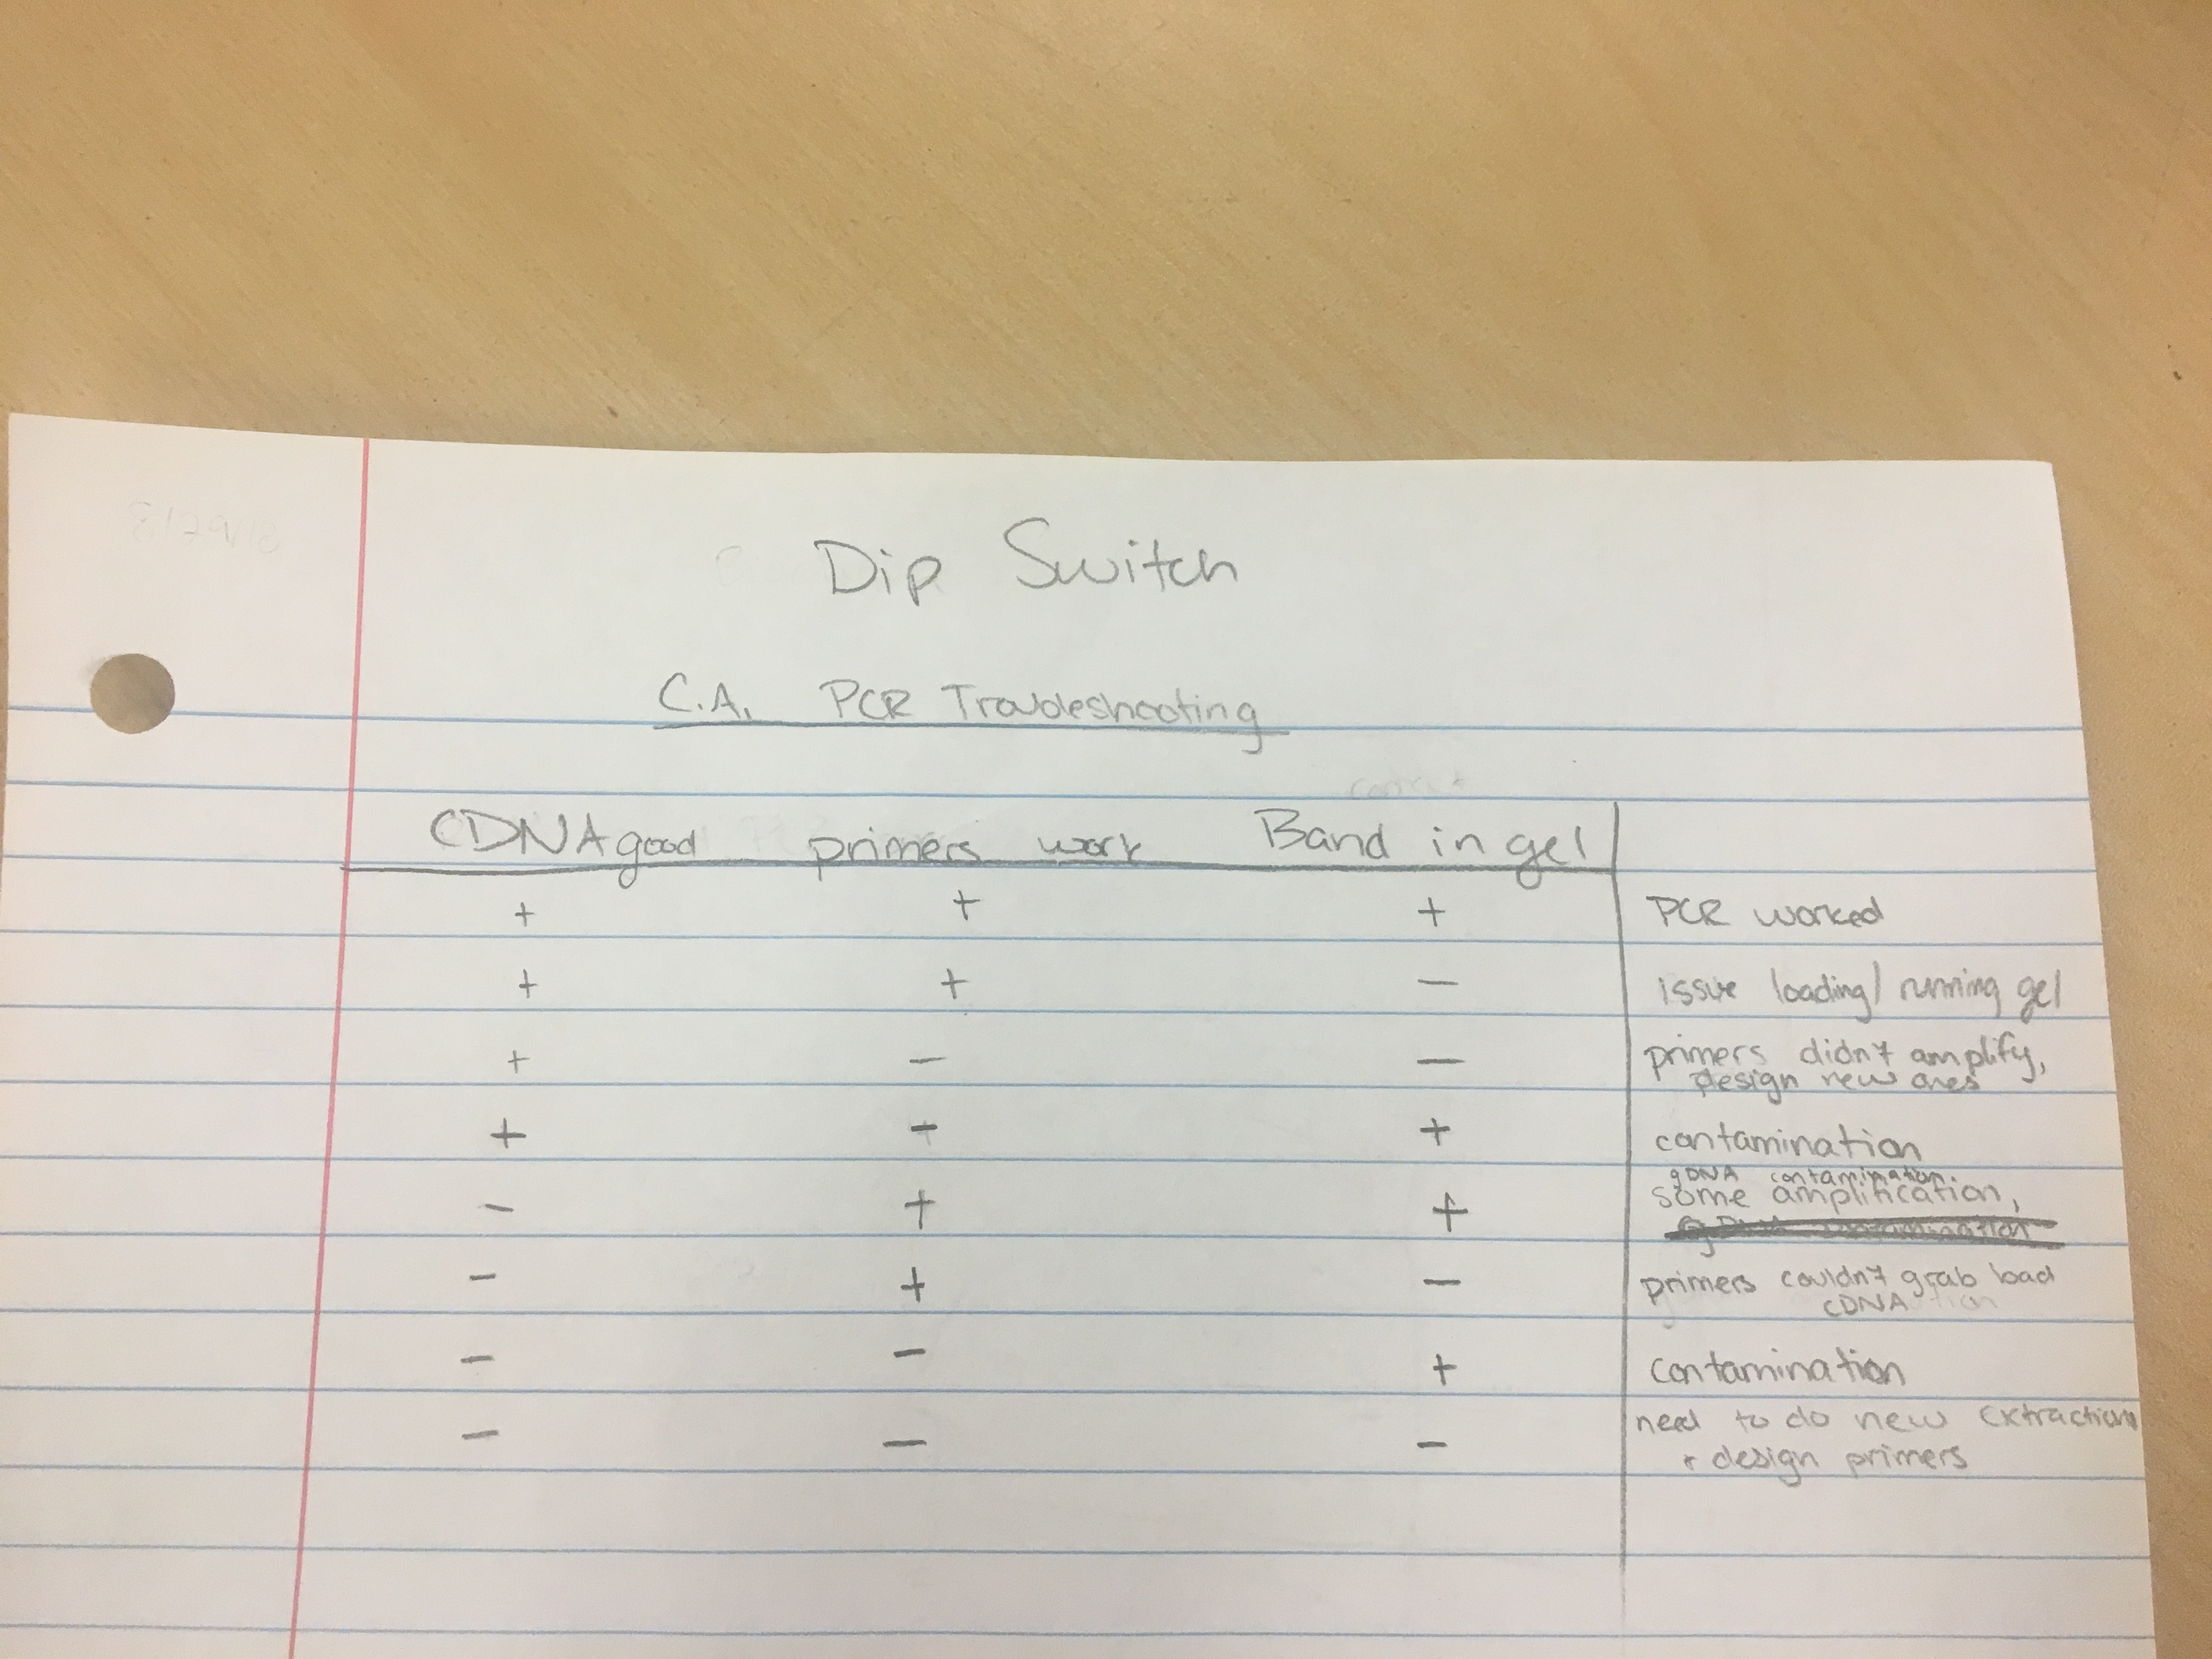 Dip Switch
C.A. PCR Troubleshooting
CDNA good primers work Band in gel
+ + + PCR worked
+ + − issue loading/running gel
+ − − primers didn't amplify,
design new ones
+ − + contamination
gDNA contamination.
− + + some amplification,
− + − primers couldn't grab bad
CDNA
− − + contamination
− − − need to do new extractions
+ design primers